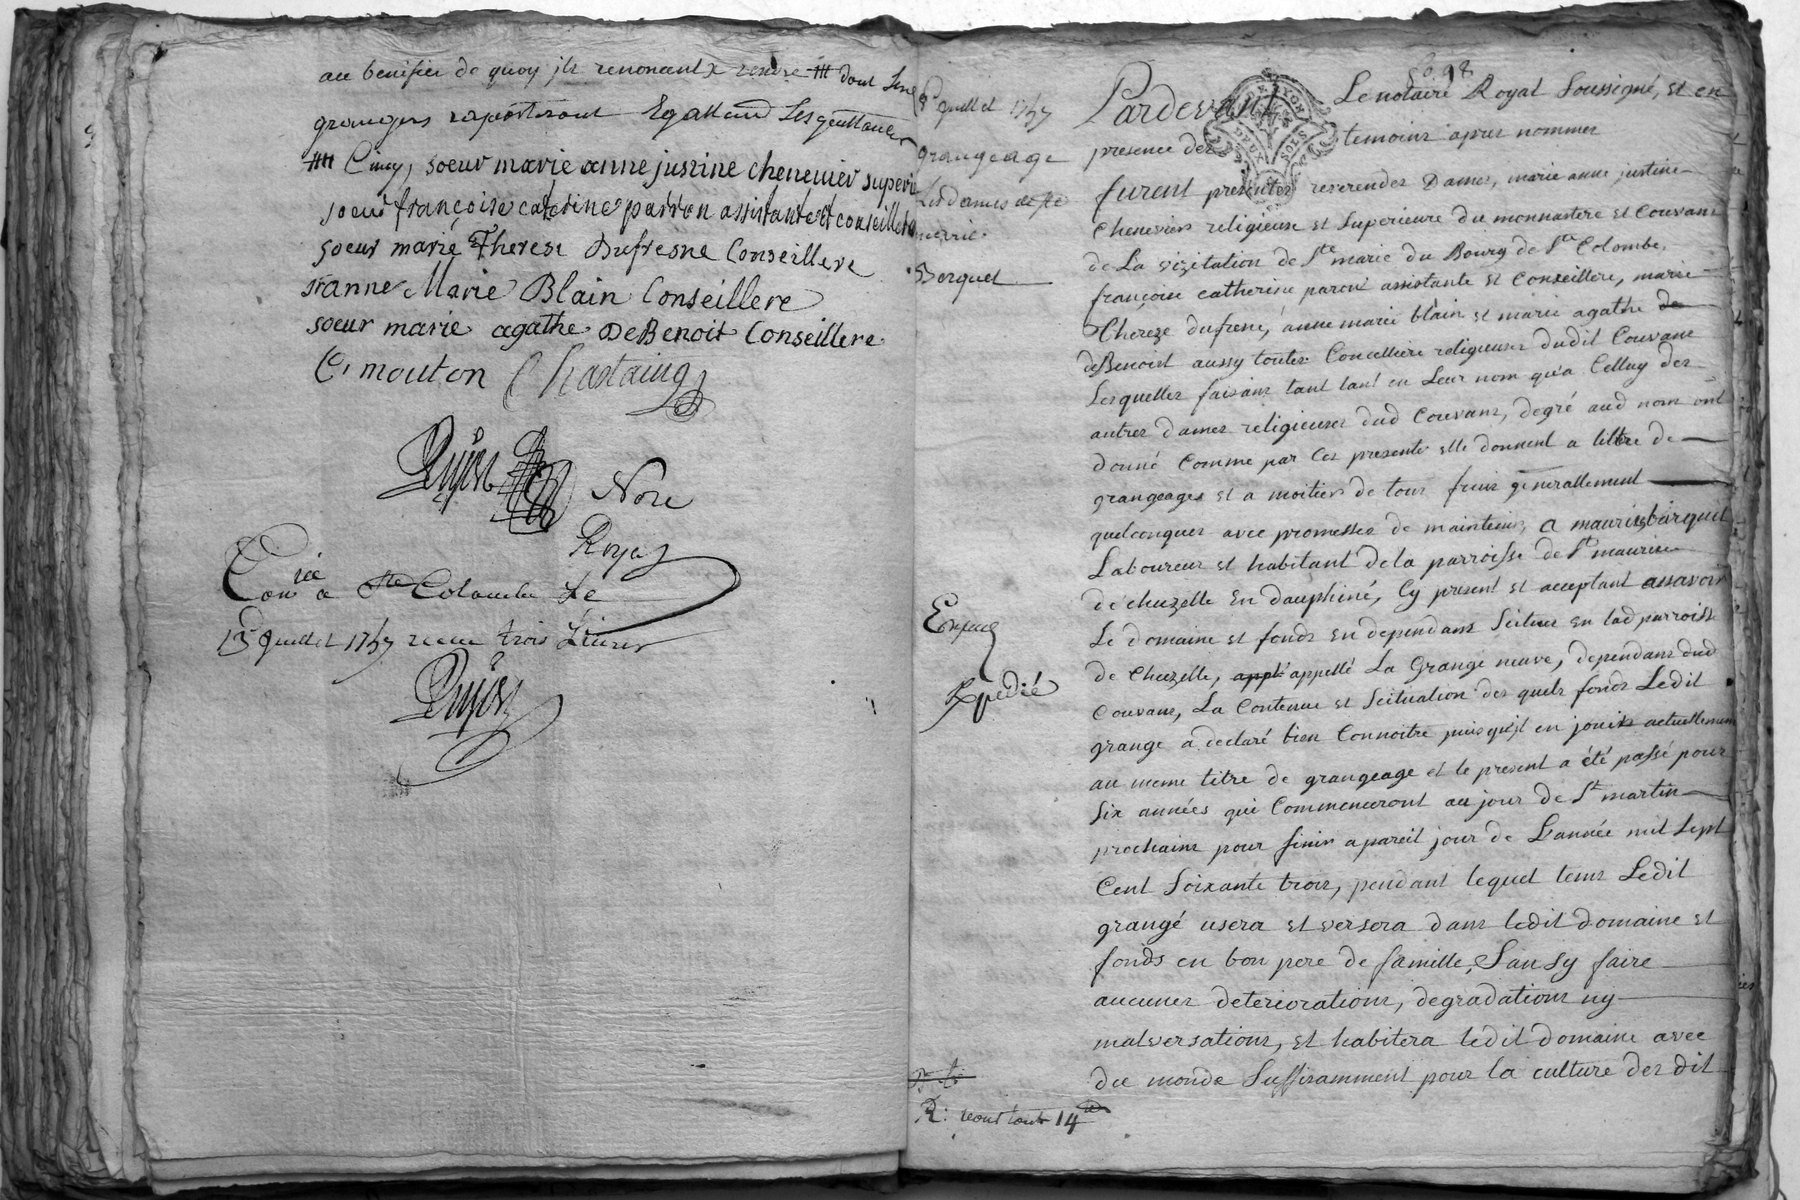 au benefice de quoy ils renoncent dont les
grangers raporteront Egallement
Cinq, soeur marie anne justine chenevier superi
soeur françoise caterine parron assistante et conseillere
soeur marie Therese Dufresne Conseillere
sr anne Marie Blain Conseillere
soeur marie agathe DeBenoit Conseillere
C. mouton Chastaing
Dujon Nore
Royal
Con a Ste Colombe Le
15 Juillet 1757 receu trois Livres
Dujon
Juillet 1757
grangeage
Les dames de Ste
marie
Borquet
Enjeug
Expedié
R: 14
98
Pardevant Le notaire Royal Soussigné, et en
presence des temoins apres nommes
furent presentes reverendes Dames, marie anne justine
Chenevier religieuse et Superieure du monnastere et Couvant
de La vizitation de Ste marie du Bourg de Ste Colombe,
françoise catherine paron assistante et Conseillere, marie
Thereze dufrene, anne marie blain et marie agathe de
deBenoist aussy toutes Concelliere religieuses dudit Couvant
Lesquelles faisant tant en Leur nom qu'a Celluy des
autres dames religieuses dud Couvans, degré aud nom ont
donné Comme par Ces presente elle donnent a tittre de
grangeages et a moities de tous fruis generallement
quelconques avec promesses de maintenir, a maurisbarquet
Laboureur et habitant de la parroisse de St maurice
de chuzelle En dauphiné, Cy present et acceptant assavoir
Le domaine et fonds en dependans Scitues en lad parroisse
de Chuzelle, appl appellé La Grange neuve, dependans dud
Couvans, La Contenue et Scituation des quels fonds Ledit
grange a declaré bien Connoitre puisqu'il en jouit actuellement
au meme titre de grangeage et le present a été passé pour
Six années qui Commenceront au jour de St martin
prochains pour finir a pareil jour de L'année mil Sept
Cent Soixante trois, pendant lequel tems Ledit
grangé usera et versera dans ledit domaine et
fonds en bon pere de famille, Sans y faire
aucunes deteriorations, degradations ny
malversations, et habitera ledit domaine avec
du monde Suffisamment pour la culture des dit